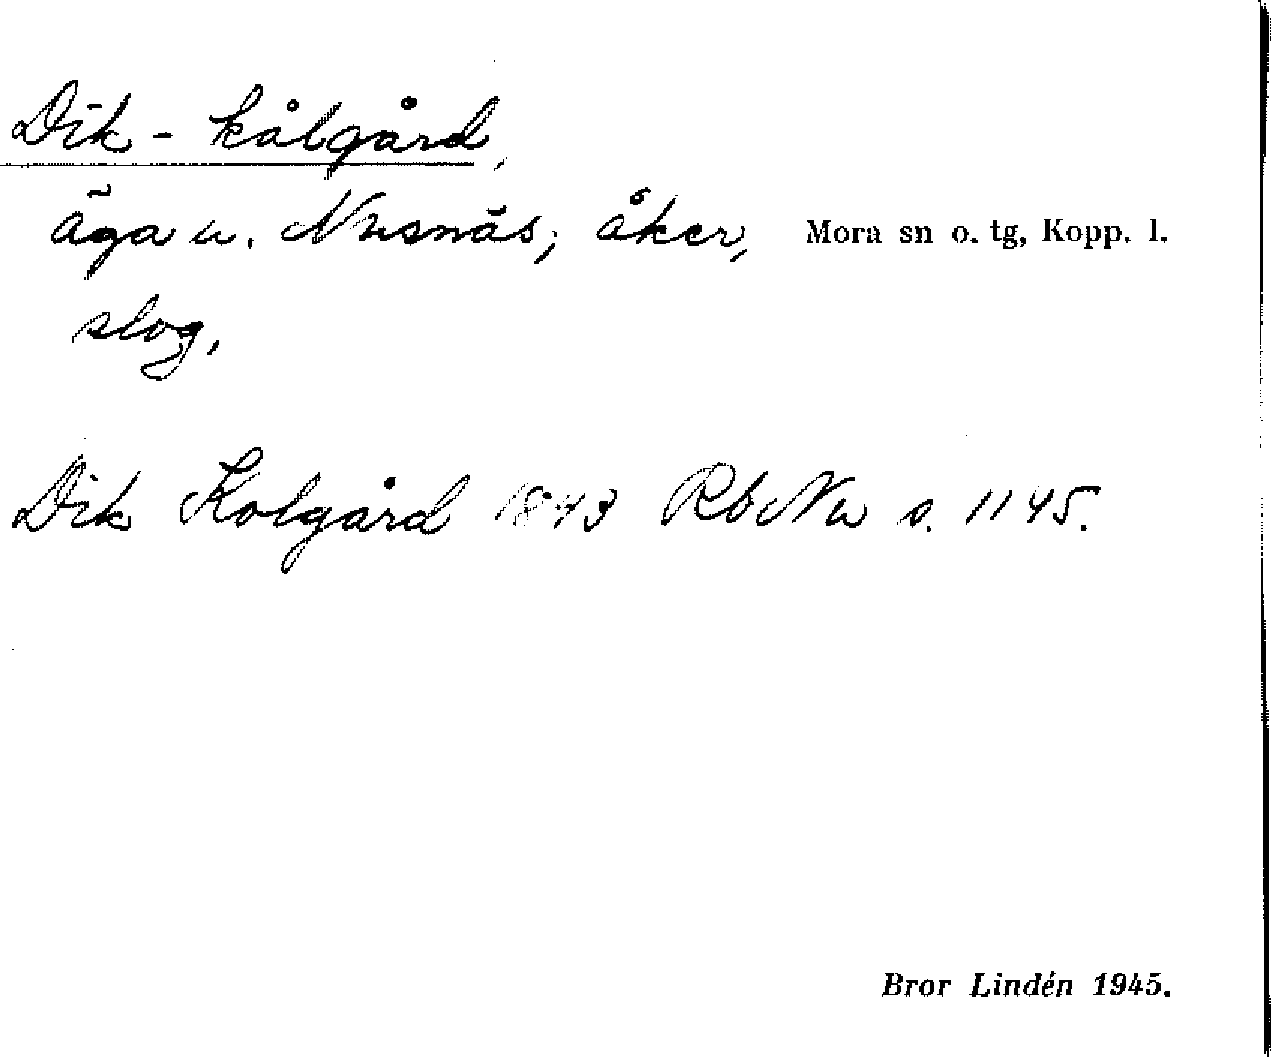 Dik - kålgård,
äga u. Nusnäs, åker, Mora sn o. tg, Kopp. l.
slog,
Dik Kolgård 1843 RbNu s. 1145.
Bror Lindén 1945.